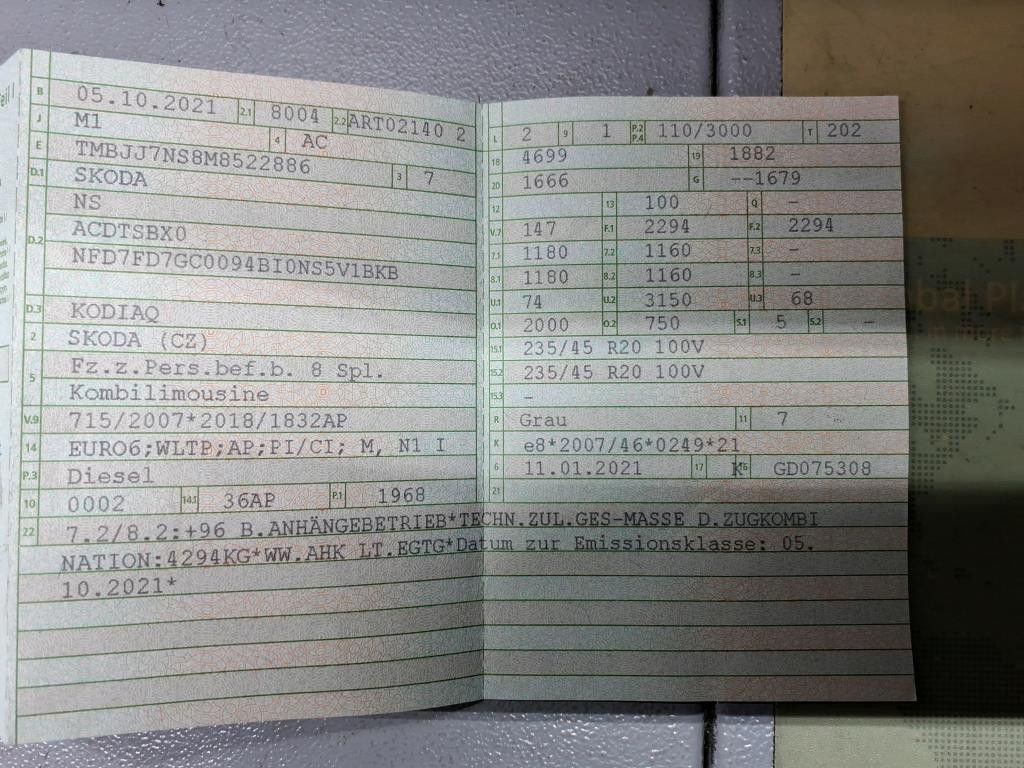 Teil I
B 05.10.2021 2.1 8004 2.2 ART02140 2
J M1 4 AC
E TMBJJ7NS8M8522886 3 7
D.1 SKODA
NS
D.2 ACDTSBX0
NFD7FD7GC0094BI0NS5V1BKB
D.3 KODIAQ
2 SKODA (CZ)
5 Fz.z.Pers.bef.b. 8 Spl.
Kombilimousine
V.9 715/2007*2018/1832AP
14 EURO6;WLTP;AP;PI/CI; M, N1 I
P.3 Diesel
10 0002 14.1 36AP P.1 1968
L 2 9 1 P.2 P.4 110/3000 T 202
18 4699 19 1882
20 1666 G --1679
12 13 100 Q -
V.7 147 F.1 2294 F.2 2294
7.1 1180 7.2 1160 7.3 -
8.1 1180 8.2 1160 8.3 -
U.1 74 U.2 3150 U.3 68
O.1 2000 O.2 750 S.1 5 S.2 -
15.1 235/45 R20 100V
15.2 235/45 R20 100V
15.3 -
R Grau 11 7
K e8*2007/46*0249*21
6 11.01.2021 17 K 16 GD075308
21
22 7.2/8.2:+96 B.ANHÄNGEBETRIEB*TECHN.ZUL.GES-MASSE D.ZUGKOMBI
NATION:4294KG*WW.AHK LT.EGTG*Datum zur Emissionsklasse: 05.
10.2021*